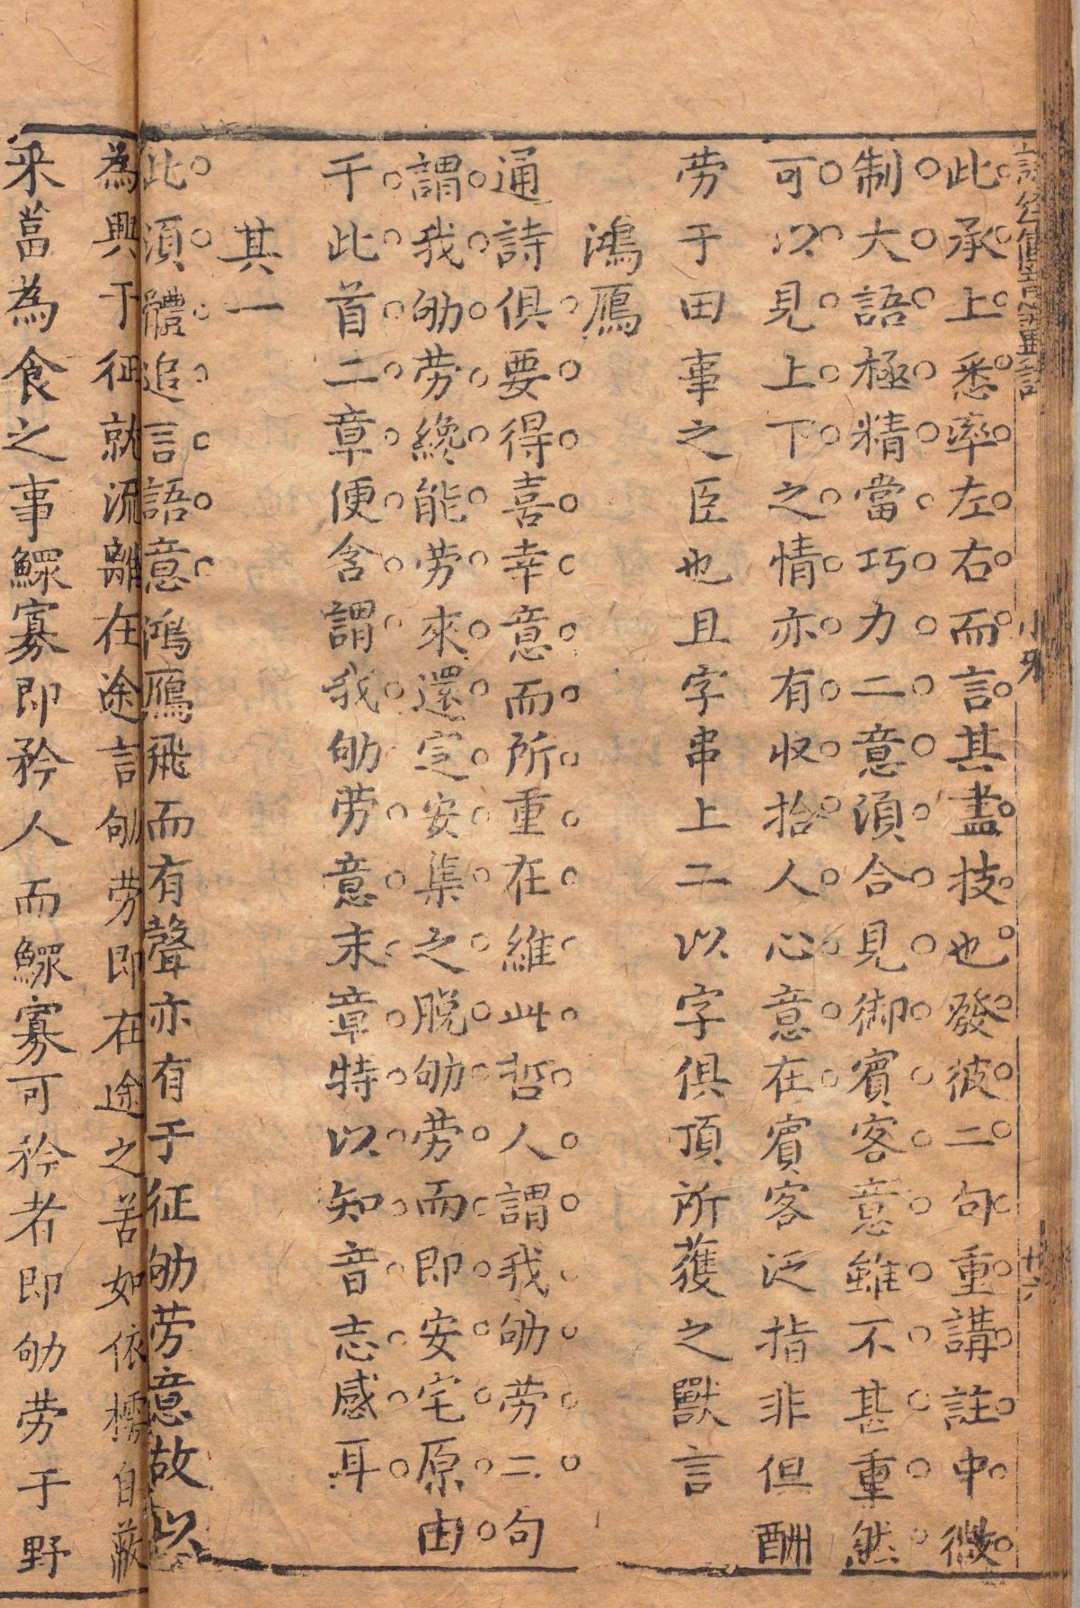 小牙
廿六
此承上悉率左右而言其盡技也發彼二句重講註中微
制大語極精當巧力二意湏合見御賓客意雖不甚重然
可以見上下之情亦有收拾人心意在賓客泛指非但酬
劳于田事之臣也且字串上二以字俱頂所獲之獸言
鴻鴈
通詩俱要得喜幸意而所重在維此哲人謂我劬劳二句
謂我劬劳纔能劳來還定安集之脫劬劳而即安宅原由
千此首二章便含謂我劬劳意末章特以知音志感耳
其一
此湏體追言語意鴻鴈飛而有聲亦有于征劬劳意故以
為興于征就流離在途言劬劳即在途之苦如依檽自蔽
采葍為食之事鰥寡即矜人而鰥寡可矜者即劬劳于野